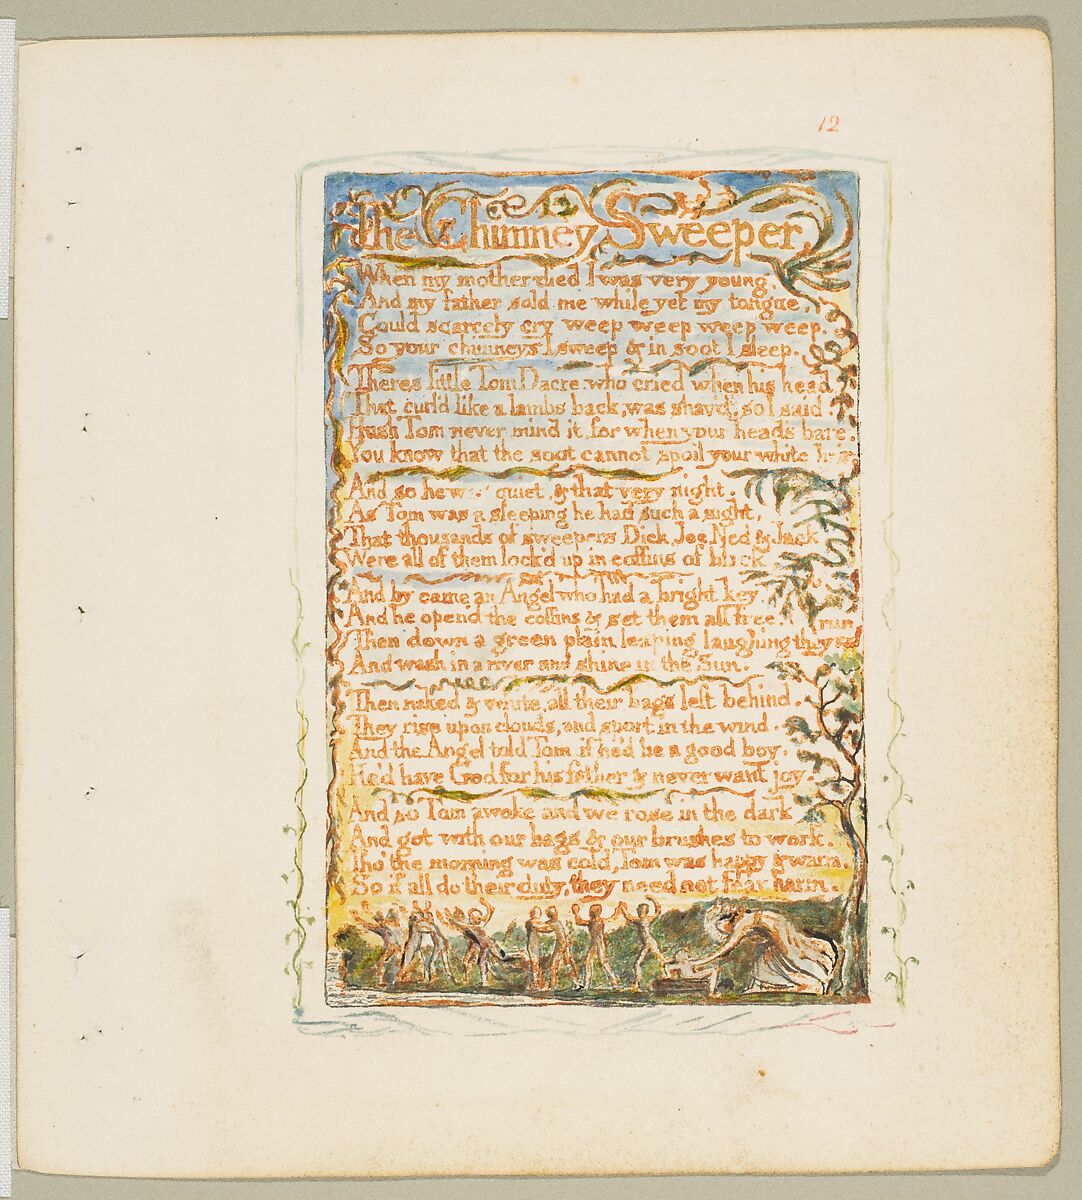 12
The Chimney Sweeper
When my mother died I was very young,
And my father sold me while yet my tongue,
Could scarcely cry weep weep weep weep.
So your chimneys I sweep & in soot I sleep.
Theres little Tom Dacre, who cried when his head
That curl'd like a lambs back, was shav'd, so I said
Hush Tom never mind it, for when your head's bare,
You know that the soot cannot spoil your white hair
And so he was quiet, & that very night.
As Tom was a sleeping he had such a sight,
That thousands of sweepers Dick, Joe, Ned & Jack
Were all of them lock'd up in coffins of black
And by came an Angel who had a bright key
And he open'd the coffins & set them all free.
Then down a green plain leaping laughing they run
And wash in a river and shine in the Sun.
Then naked & white, all their bags left behind.
They rise upon clouds, and sport in the wind
And the Angel told Tom if he'd be a good boy,
He'd have God for his father & never want joy.
And so Tom awoke and we rose in the dark
And got with our bags & our brushes to work.
Tho' the morning was cold, Tom was happy & warm.
So if all do their duty, they need not fear harm.